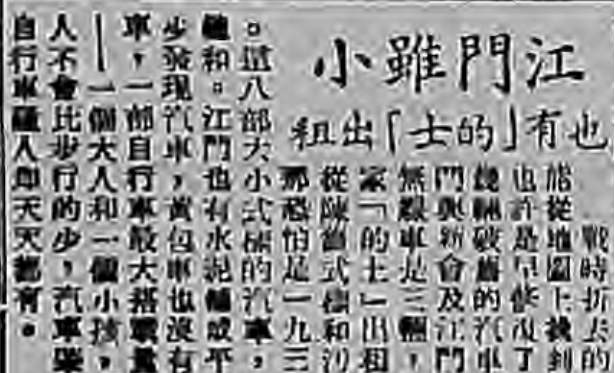 江門雖小
也有「的士」出租
戰時折去的
能從地圖上到
也許是早修復了
幾輛破舊的汽車
門與新會及江門
無車是三輛，
家「的士」出租
從陳舊式樣和沙
那恐怕是一九三
。這八部大小式樣的汽車，
種和。江門也有水泥的舖或平
步發現。汽車，黃包車也沒有
車，一部自行車最大搭載量
—一個大人和一個小孩，
人不會比步行的少，汽車
自行車人即天天都有。